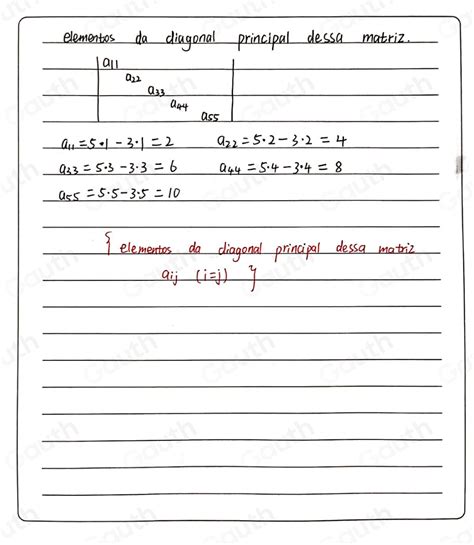 elementos da diagonal principal dessa matriz.
a11
a22
a33
a44
a55
a11=5·1-3·1=2 a22=5·2-3·2=4
a33=5·3-3·3=6 a44=5·4-3·4=8
a55=5·5-3·5=10
{ elementos da diagonal principal dessa matriz
aij (i=j) }